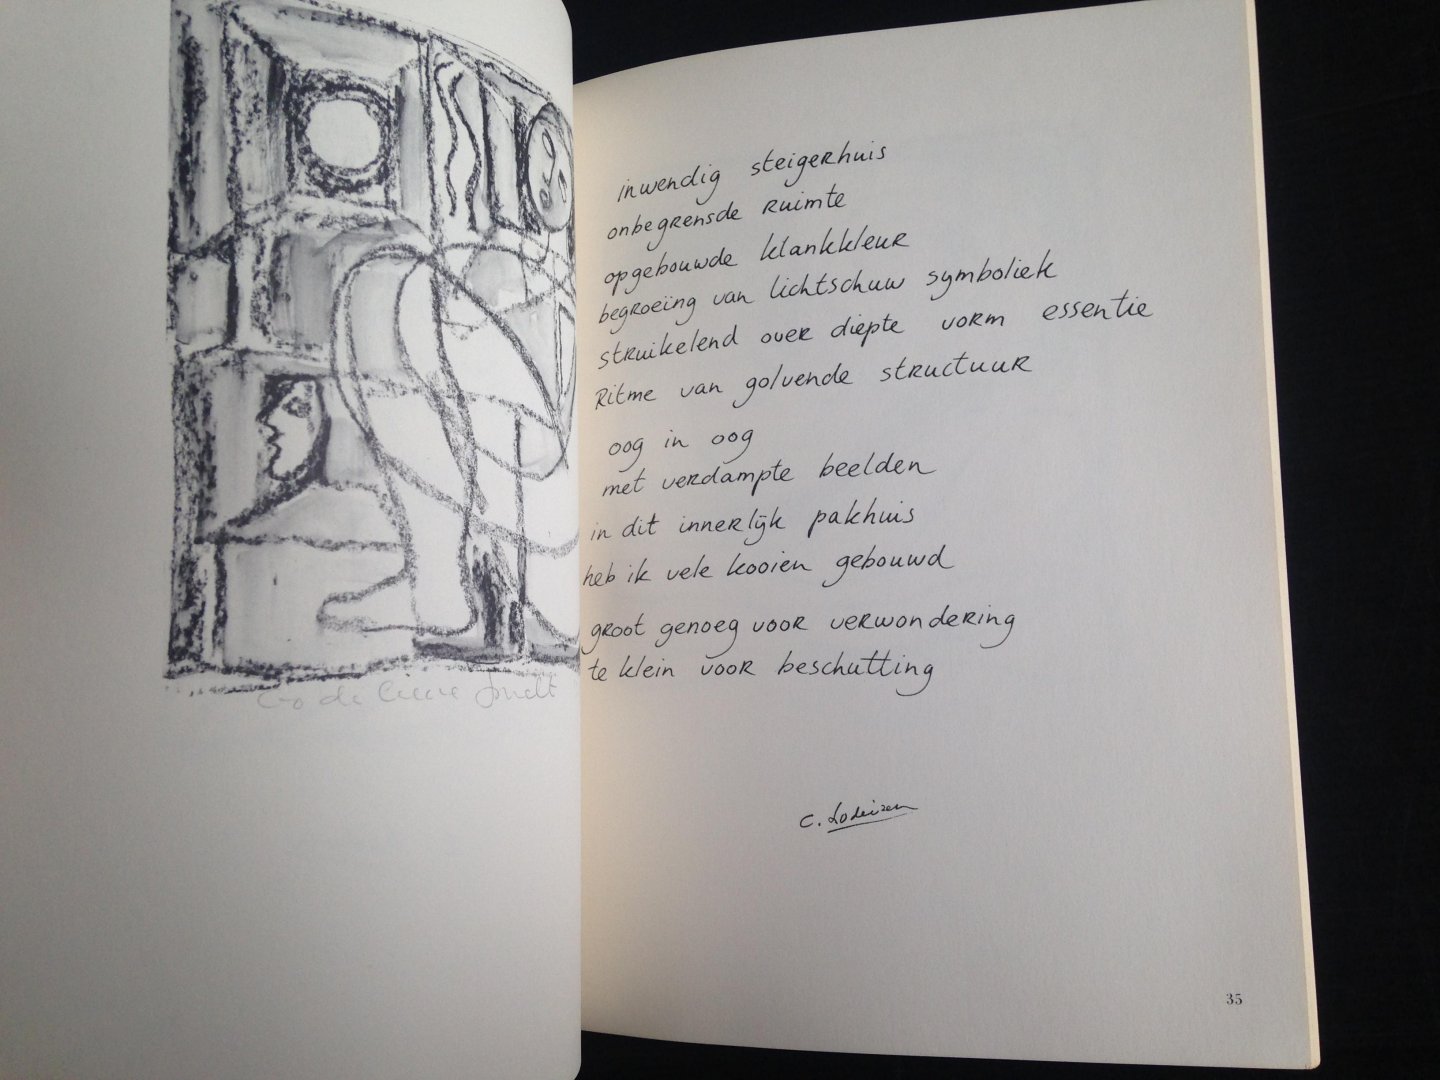 inwendig steigerhuis
onbegrensde ruimte
opgebouwde klankkleur
begroeïng van lichtschuw symboliek
struikelend over diepte vorm essentie
Ritme van golvende structuur
oog in oog
met verdampte beelden
in dit innerlijk pakhuis
heb ik vele kooien gebouwd
groot genoeg voor verwondering
te klein voor beschutting
C. Lodeizen
35